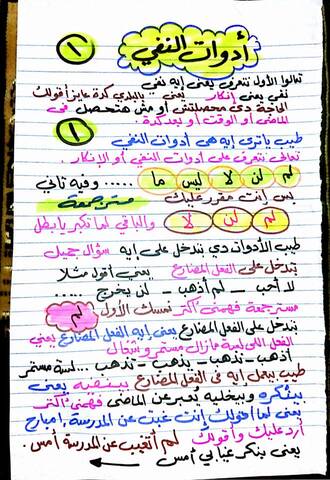 ١
أدوات النفي
تعالوا الأول نتعرف يعني إيه نفي
نفي يعني إنكار يعني .. بالبلدي كدة عايز أقولك
الحاجة دي محصلتش أو مش هتحصل في
الماضي أو الوقت أو بعد كدة
١ طيب ياترى إيه هي أدوات النفي
تعالى نتعرف على أدوات النفي أو الإنكار
لم لن لا ليس ما ..... وفيه تاني
بس إنت مقرر عليك مستر جمعة
لم لن لا والباقي لما تكبر يابطل
طيب الأدوات دي بتدخل على إيه سؤال جميل
بتدخل على الفعل المضارع يعني أقول مثلا
لا أحب - لم أذهب - لن يخرج ......
مستر جمعة فهمني أكتر نمسك الأول لم
بتدخل على الفعل المضارع يعني إيه الفعل المضارع يعني
الفعل اللي لسة مازال مستمر وشغال
أذهب - نذهب - يذهب - تذهب ... لسة مستمر
طيب بيعمل إيه في الفعل المضارع بينفيه يعني
بينكره وبيخليه يعبر عن الماضي فهمني أكتر
يعني لما أقولك إنت غبت عن المدرسة إمبارح
أرد عليك وأقولك لم أتغيب عن المدرسة أمس.
يعني بنكر غيابي أمس